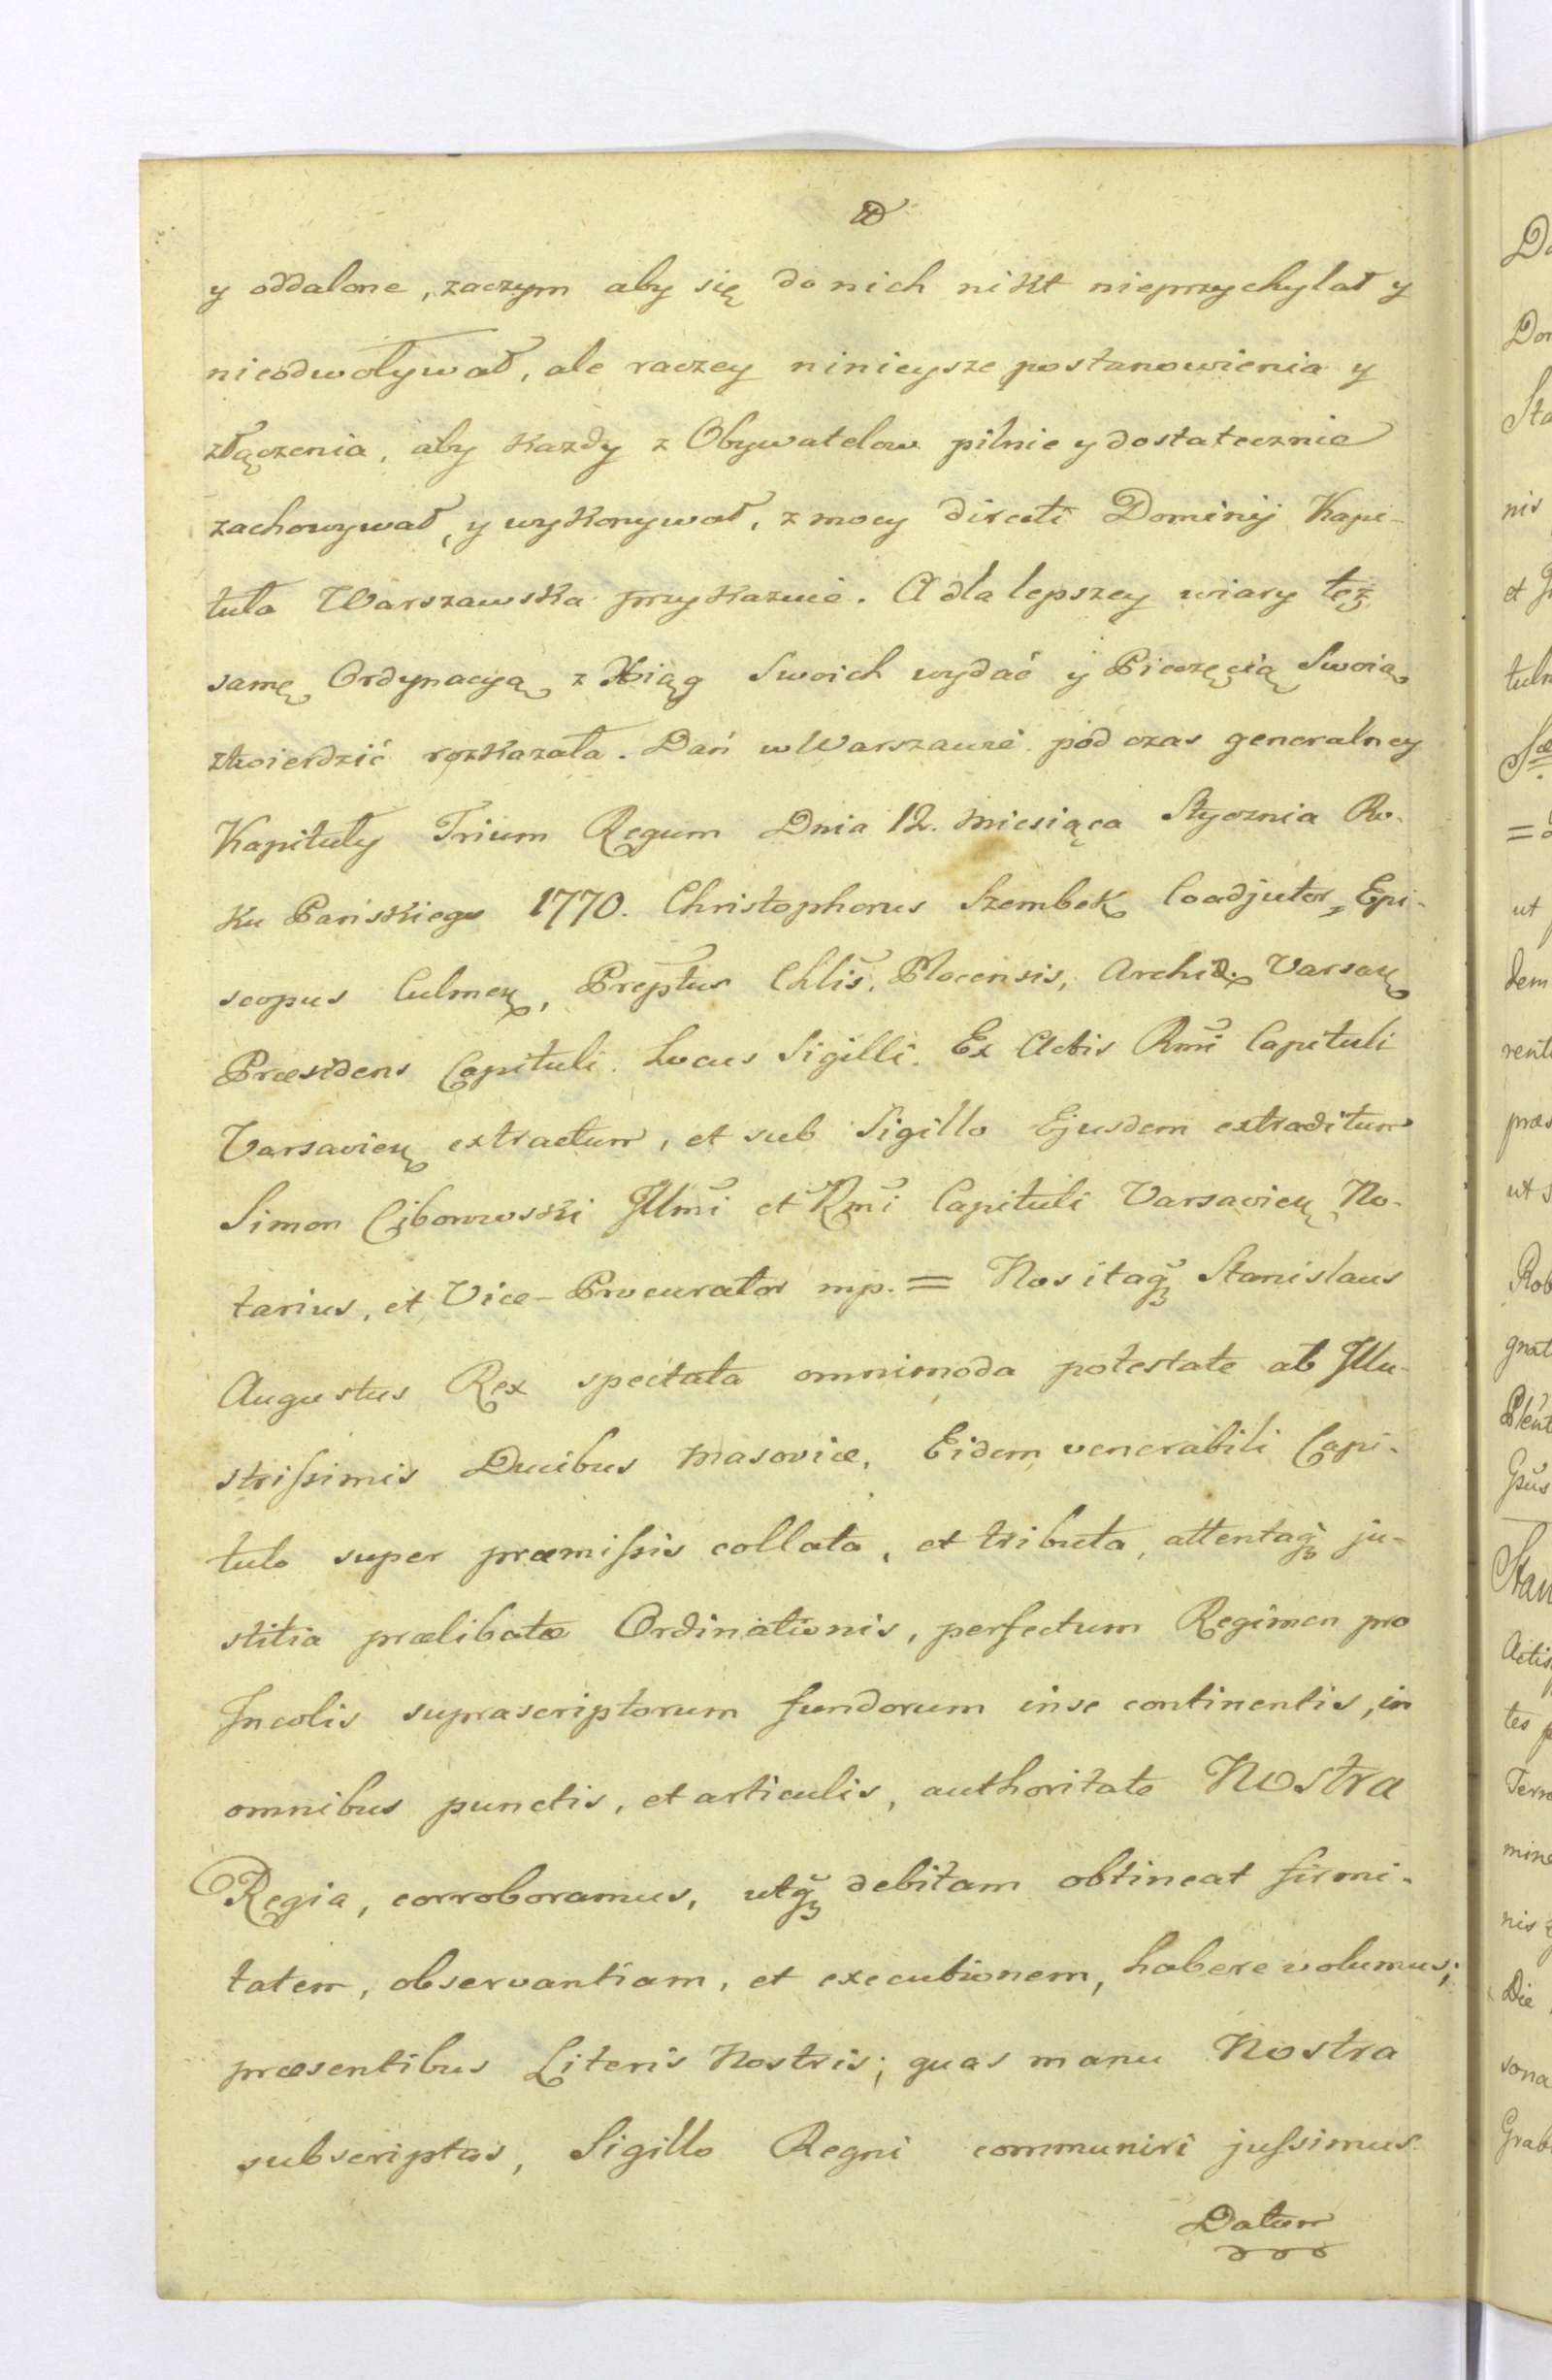 y oddalone, zaczym aby się do nich nikt nieprzychylał y
nieodwoływał, ale raczey ninieysze postanowienia y
złączenia, aby kazdy z Obywatelow pilnie y dostatecznie
zachowywał, y wykonywał, z mocy directi Dominij Kapi-
tuła Warszawska przykazuie. A dla lepszey wiary też
samę Ordynacyą z Xiąg Swoich wydać y Pieczęcią Swoią
ztwierdzić rozkazała. Dań w Warszawie pod czas generalney
Kapituły Trium Regum Dnia 12. Miesiąca Stycznia Ro-
ku Pańskiego 1770. Christophorus Szembek Coadjutor, Epi-
scopus Culmen, Preptus Chlis. Plocensis, Archid. Varsav
Præsidens Capituli. Locus Sigilli. Ex Actis Rmi Capituli
Varsavien extractum, et sub Sigillo Ejusdem extraditum
Simon Ciborowski Illmi et Rmi Capituli Varsavien No-
tarius, et Vice-Procurator mp. = Nos itaq Stanislaus
Augustus Rex spectata omnimoda potestate ab Illu-
strissimis Ducibus Masoviæ, Eidem venerabili Capi-
tulo super præmissis collata, et tributa, attentaq ju-
stitia prælibatæ Ordinationis, perfectum Regimen pro
Incolis suprascriptorum fundorum in se continentis, in
omnibus punctis, et articulis, authoritate Nostra
Regia, corroboramus, utq debitam obtineat firmi-
tatem, observantiam, et executionem, habere volumus;
præsentibus Literis Nostris; quas manu Nostra
subscriptas, Sigillo Regni communiri jussimus.
Datum